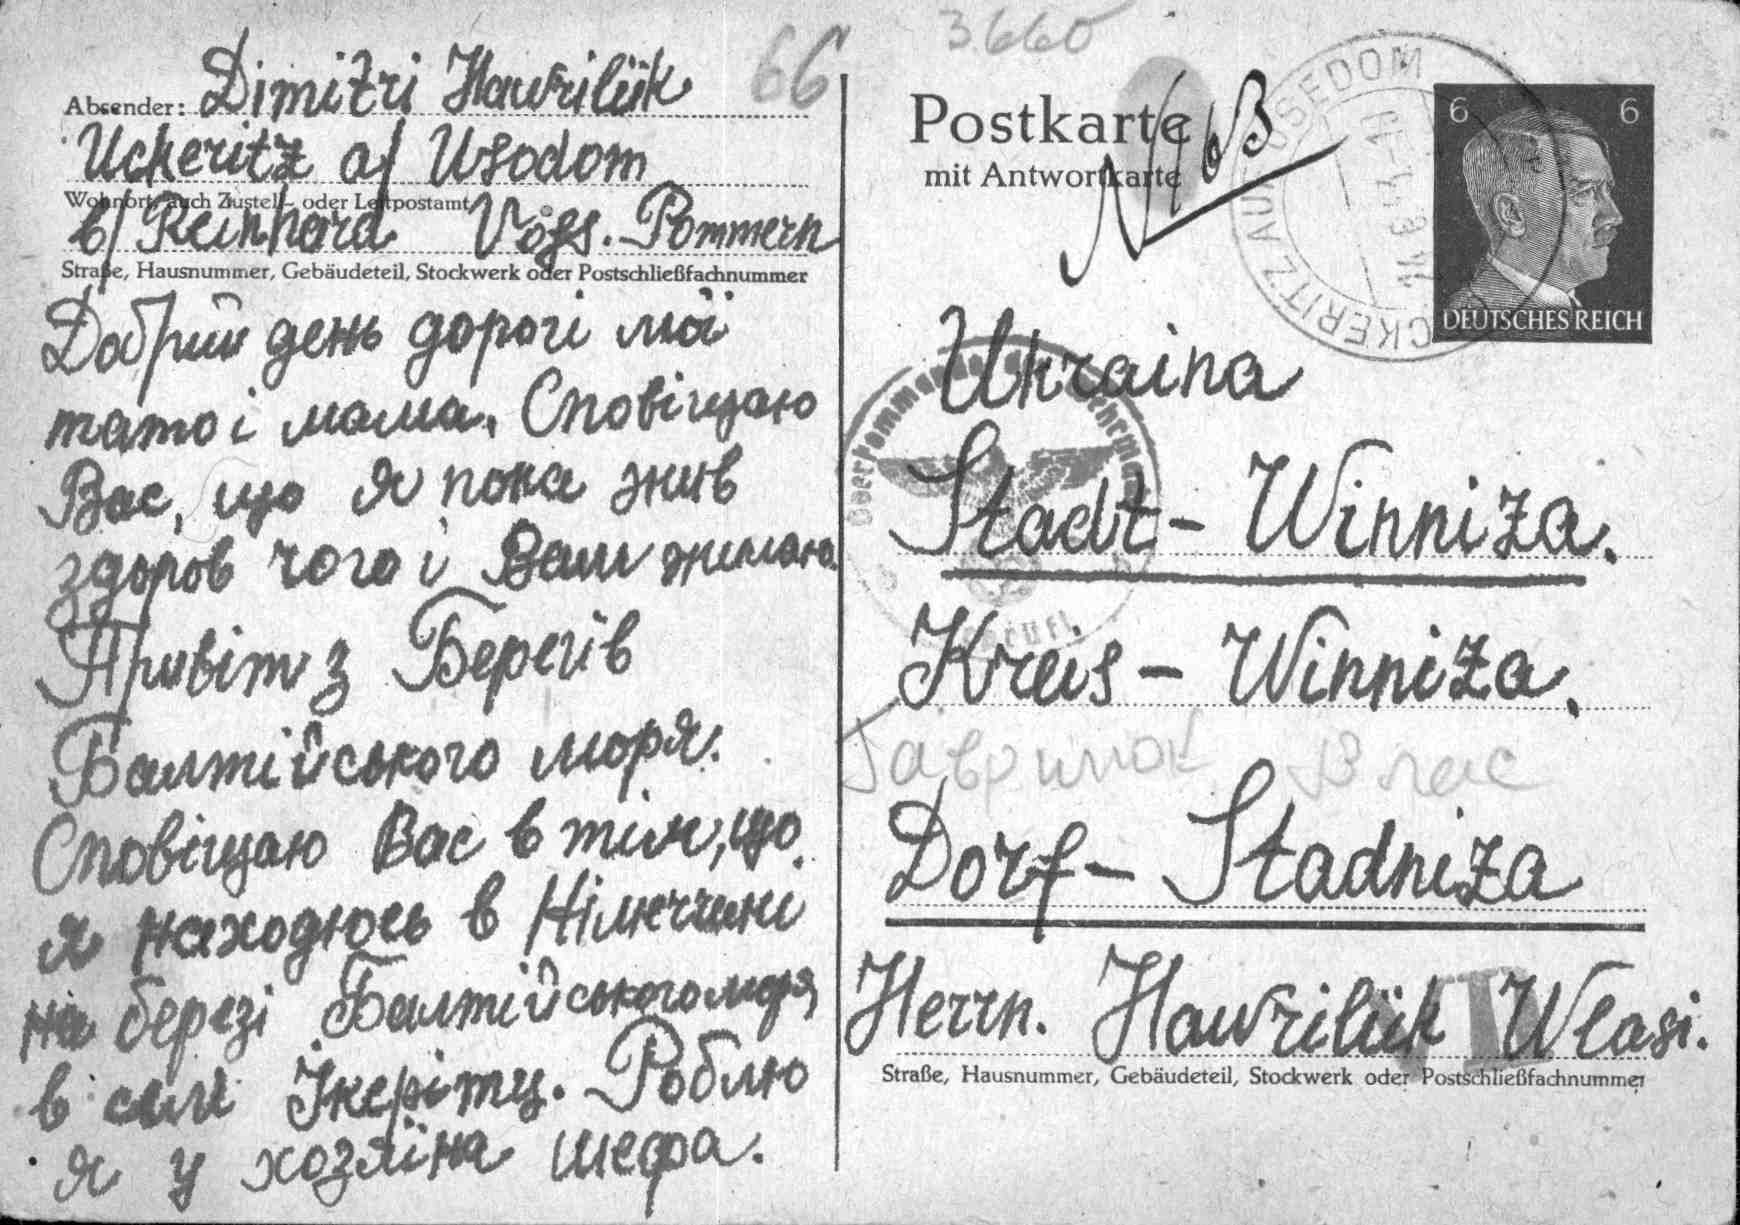 66
3660
Absender: Dimitri Hawriliik
Uckeritz a/ Usodom
Wohnort, auch Zustell- oder Leitpostamt
b/ Reinhard Vögs. Pommern
Straße, Hausnummer, Gebäudeteil, Stockwerk oder Postschließfachnummer
Добрий день дорогі мої
тато і мама. Сповіщаю
Вас, що я пока жив
здоров чого і Вам жилаю.
Привіт з Берегів
Балтійського моря.
Сповіщаю Вас в тім, що
я находюсь в Німеччині
на березі Балтійського моря
в селі Ікерітц. Роблю
я у хозяїна шефа.
Postkarte
mit Antwortkarte
6 6
DEUTSCHES REICH
Ukraina
Stadt - Winniza.
Kreis - Winniza.
Влас
Dorf - Stadniza
Herrn. Hawriliik Wlasi.
Straße, Hausnummer, Gebäudeteil, Stockwerk oder Postschließfachnummer